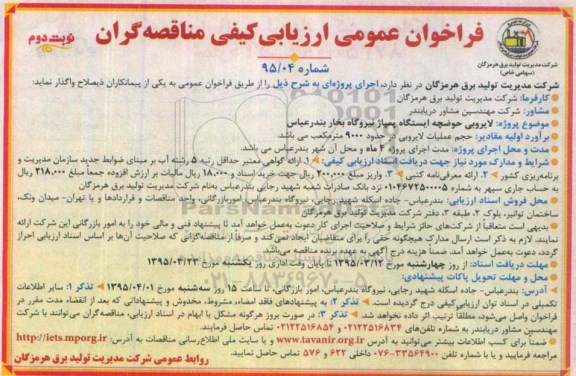 فراخوان عمومی ارزیابی‌کیفی مناقصه‌گران
نوبت دوم
شرکت مدیریت تولید برق هرمزگان
(سهامی خاص)
شماره ۹۵/۰۴
شرکت مدیریت تولید برق هرمزگان در نظر دارد، اجرای پروژه‌ای به شرح ذیل را از طریق فراخوان عمومی به یکی از پیمانکاران ذیصلاح واگذار نماید:
کارفرما: شرکت مدیریت تولید برق هرمزگان
مشاور: شرکت مهندسین مشاور دریابندر
موضوع پروژه: لایروبی حوضچه ایستگاه پمپاژ نیروگاه بخار بندرعباس
برآورد اولیه مقادیر: حجم عملیات لایروبی در حدود ۹۰۰۰ مترمکعب می باشد.
مدت و محل اجرای پروژه: مدت اجرای پروژه ۴ ماه و محل آن شهر بندرعباس می باشد.
شرایط و مدارک مورد نیاز جهت دریافت اسناد ارزیابی کیفی: ۱. ارائه گواهی معتبر حداقل رتبه ۵ رشته آب بر مبنای ضوابط جدید سازمان مدیریت و
برنامه‌ریزی کشور ۲. ارائه معرفی‌نامه کتبی ۳. واریز مبلغ ۲۰۰٫۰۰۰ ریال جهت خرید اسناد و ۱۸٫۰۰۰ ریال مالیات بر ارزش افزوده جمعاً مبلغ ۲۱۸٫۰۰۰ ریال
به حساب جاری سپهر به شماره ۰۱۰۴۶۷۲۵۰۰۰۵ نزد بانک صادرات شعبه شهید رجایی بندرعباس به‌نام شرکت مدیریت تولید برق هرمزگان
محل فروش اسناد ارزیابی: بندرعباس- جاده اسکله شهید رجایی، نیروگاه بندرعباس، امور بازرگانی، واحد مناقصات و قراردادها و یا تهران- میدان ونک،
ساختمان توانیر، بلوک ۲، طبقه ۳، دفتر شرکت مدیریت تولید برق هرمزگان
بدیهی است متعاقباً از شرکت‌های حائز شرایط و صلاحیت اجرای کار دعوت به‌عمل خواهد آمد تا پیشنهاد فنی و مالی خود را به امور بازرگانی این شرکت ارائه
نمایند. لازم به ذکر است ارسال مدارک هیچگونه حقی را برای متقاضیان ایجاد نمی‌کند و صرفاً از مناقصه‌گرانی که صلاحیت آن‌ها بر اساس اسناد ارزیابی احراز
گردد، دعوت به‌عمل خواهد آمد. ضمناً هزینه درج آگهی به عهده برنده مناقصه می‌باشد.
مهلت دریافت اسناد: از روز چهارشنبه مورخ ۱۳۹۵/۰۳/۱۲ تا پایان وقت اداری روز یکشنبه مورخ ۱۳۹۵/۰۳/۲۳
محل و مهلت تحویل پاکات پیشنهادی:
آدرس: بندرعباس- جاده اسکله شهید رجایی، نیروگاه بندرعباس، امور بازرگانی، تا ساعت ۱۵ روز سه‌شنبه مورخ ۱۳۹۵/۰۴/۰۱ تذکر ۱: سایر اطلاعات
تکمیلی در اسناد توان ارزیابی‌کیفی درج گردیده است. تذکر ۲: به پیشنهادهای فاقد امضاء، مشروط، مخدوش و پیشنهاداتی که بعد از انقضاء مدت مقرر در
فراخوان واصل می‌شود، مطلقاً ترتیب اثر داده نخواهد شد. تذکر ۳: در صورت بروز هرگونه مشکل یا ابهام در اسناد ارزیابی، مناقصه‌گران می‌توانند با شرکت
مهندسین مشاور دریابندر به شماره تلفن‌های ۰۲۱۲۲۵۱۶۸۳۴ و ۰۲۱۲۲۵۱۶۸۵۴ تماس حاصل فرمایند.
ضمناً برای کسب اطلاعات بیشتر می‌توانید به آدرس www.tavanir.org.ir و یا سایت ملی اطلاع‌رسانی مناقصات به آدرس http://iets.mporg.ir
مراجعه فرمایید و یا با شماره تلفن ۳۳۵۶۴۹۰۰-۰۷۶ داخلی ۶۲۲ و ۵۷۶ تماس حاصل نمایید.
روابط عمومی شرکت مدیریت تولید برق هرمزگان